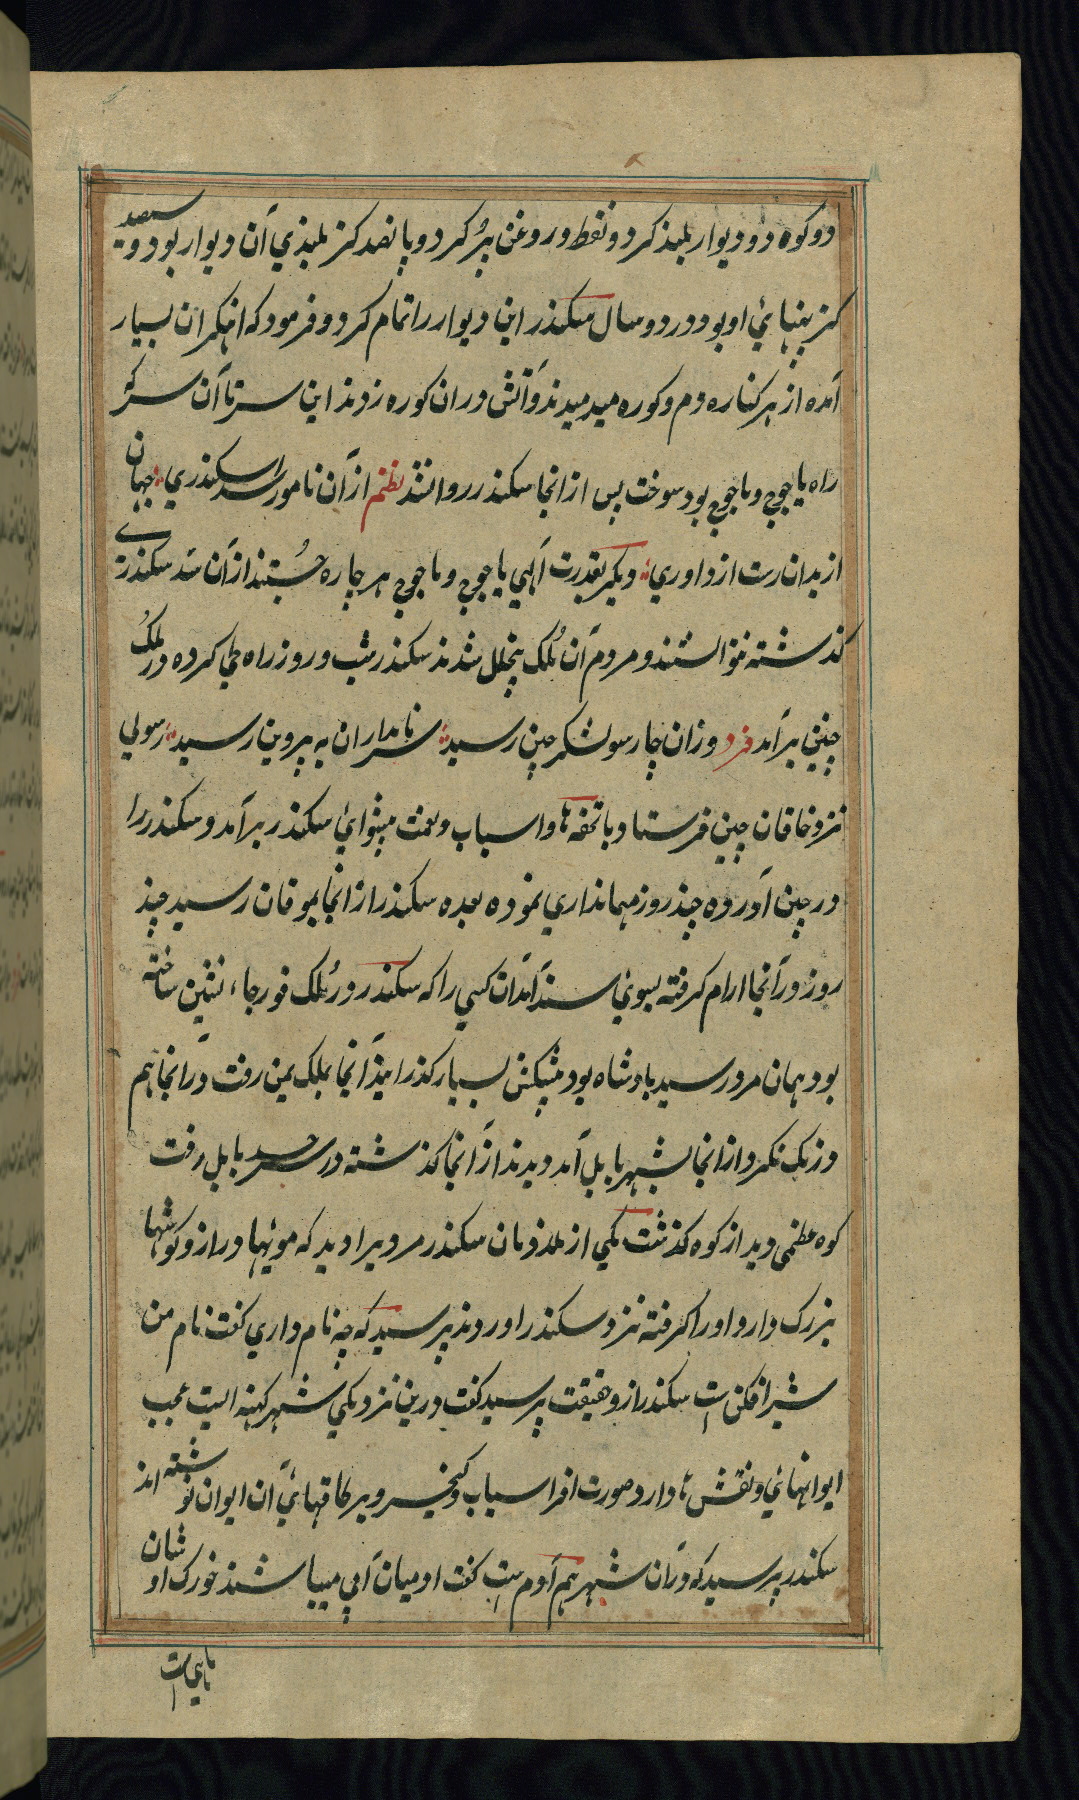 دو کوه دو دیوار بلیذ کرد و نفط و روغن پُر کرد و پانصد کز بلیذي آن دیوار بود و سیصد
کز پنهائ او بود در دو سال سکندر این دیوار را تمام کرد و فرمود که اهنکران بسیار
آمده از هر کناره دم و کوره میدمیدند و آتش دران کوره زدند این سر تا آن سر که
راه یاجوج و ماجوج بود سوخت پس از انجا سکندر روانشد نظم از آن نامور سد اسکندري جهان
از بدان رست از داوري دیکر بقدرت آلهي یاجوج و ماجوج هر چاره جُستند از آن سد سکندرے
کذشته نتوانستند و مردم آن مُلک بیخلل شدند سکندر شب و روز راه طي کرده در مُلک
چین بر آمد فرد وزان جا رسو لشکر چین رسید سر نامداران به پروین رسید رسولي
نزد خاقان چین فرستاد با تحفه ها و اسباب و نعمت میشوائ سکندر بر آمد و سکندر را
در چین آورده چند روز مهمانداري نموده بعده سکندر از انجا بموقان رسید چند
روز در آنجا ارام کرفته بسوئ سند آمد آن کسي را که سکندر در مُلک فور جاء نشین ساخته
بود همان مرد رسید بادشاه بود پیشکش بسیار کذرانید از آنجا بملک یمن رفت در آنجا هم
درنک نکرد از انجا بشهر بابل آمد دیدند از آنجا کذشته در سرحد بابل رفت
کوه عظمي دید از کوه کذشت یکي از ملازمان سکندر مردیرا دید که موئها دراز و کوشها
بزرک دارد او را کرفته نزد سکندر اوردند پرسید که چه نام داري کفت نام من
شیر افکن است سکندر ازو حقیقت پرسید کفت درین نزدیکي شهر کهنه ایست عجب
ایوانهائي و نقش ها دارد صورت افراسیاب و کیخسرو بر طاقهائ آن ایوان نوشته اند
سکندر پرسید که در آن شهر هم آدم هست کفت او میان آبي میباشند خورک اوشان
ماهي است